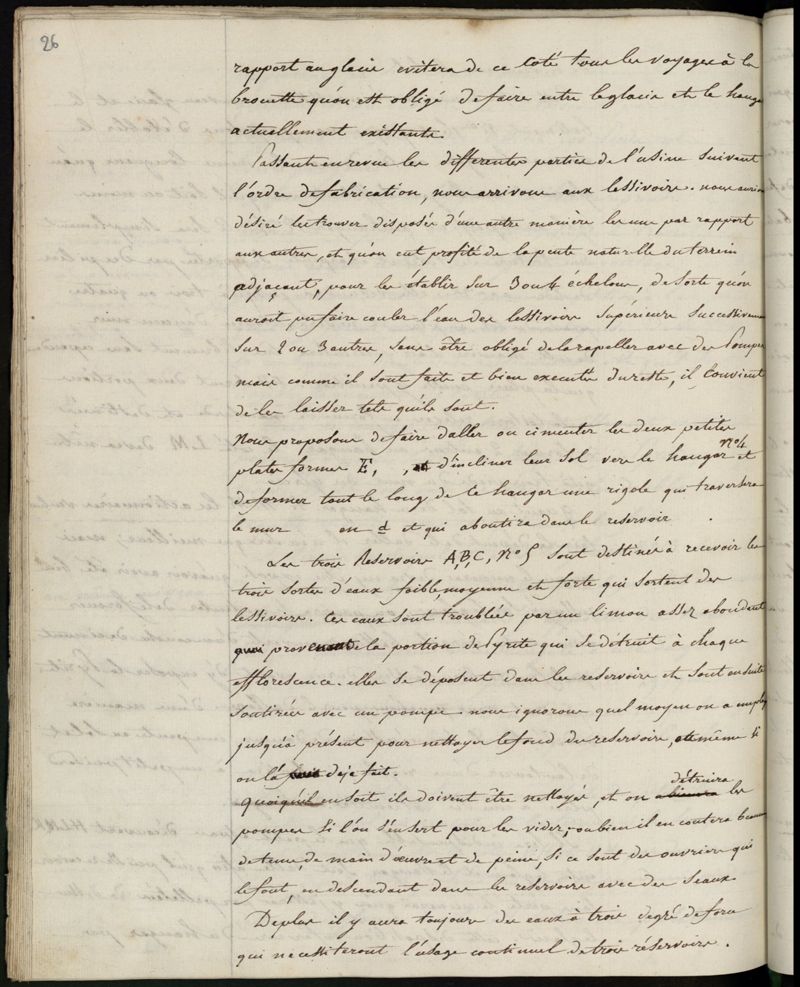 26
rapport au glacis evitera de ce coté tous les voyages à la
brouette qu'on est obligé de faire entre le glacis et le hangar
actuellement existants.
Passants en revue les differentes parties de l'usine suivant
l'ordre de fabrication, nous arrivons aux lessivoirs. nous aurions
désiré les trouver disposés d'une autre manière les uns par rapport
aux autres, et qu'on eut profité de la pente naturelle du terrein
adjaçant, pour les établir sur 3 ou 4 échelons, de sorte qu'on
auroit pu faire couler l'eau des lessivoirs supérieurs successivement
sur 2 ou 3 autres, sans être obligé de la rapeller avec des Pompes
mais comme il sont faits et bien executés du reste, il convient
de les laisser tels qu'ils sont.
Nous proposons de faire daller ou cimenter les deux petites
plates formes E, , et d'incliner leur sol vers le hangar n°4 et
de former tout le long de ce hangar une rigole qui traversera
le mur en d et qui aboutira dans le reservoir.
Les trois Reservoirs A, B, C, N° 5 sont destinés à recevoir les
trois sortes d'eaux foible, moyenne et forte qui sortent des
lessivoirs. Ces eaux sont troublées par un limon assez abondant
qui provenant de la portion de Pyrite qui se detruit à chaque
efflorescence. elles se déposent dans les reservoirs et sont ensuite
soutirées avec un pompe. nous ignorons quel moyen on a employé
jusqu'à présent pour nettoyer le fond du reservoir, et même si
on l'a deja fait.
quoiqu'il en soit ils doivent être nettoyés, et on détruira les
pompes si l'on s'en sert pour les vider, ou bien il en coutera beaucoup
de tems, de main d'œuvre et de peine, si ce sont des ouvriers qui
le font, en descendant dans les reservoirs avec des seaux.
De plus il y aura toujours des eaux à trois degré de force
qui necessiteront l'usage continuel de trois réservoirs.